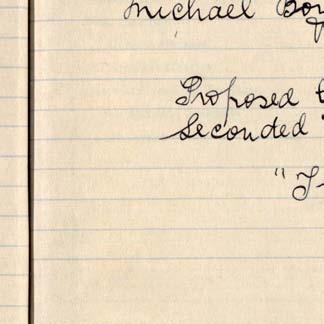 Michael
Proposed
Seconded
"